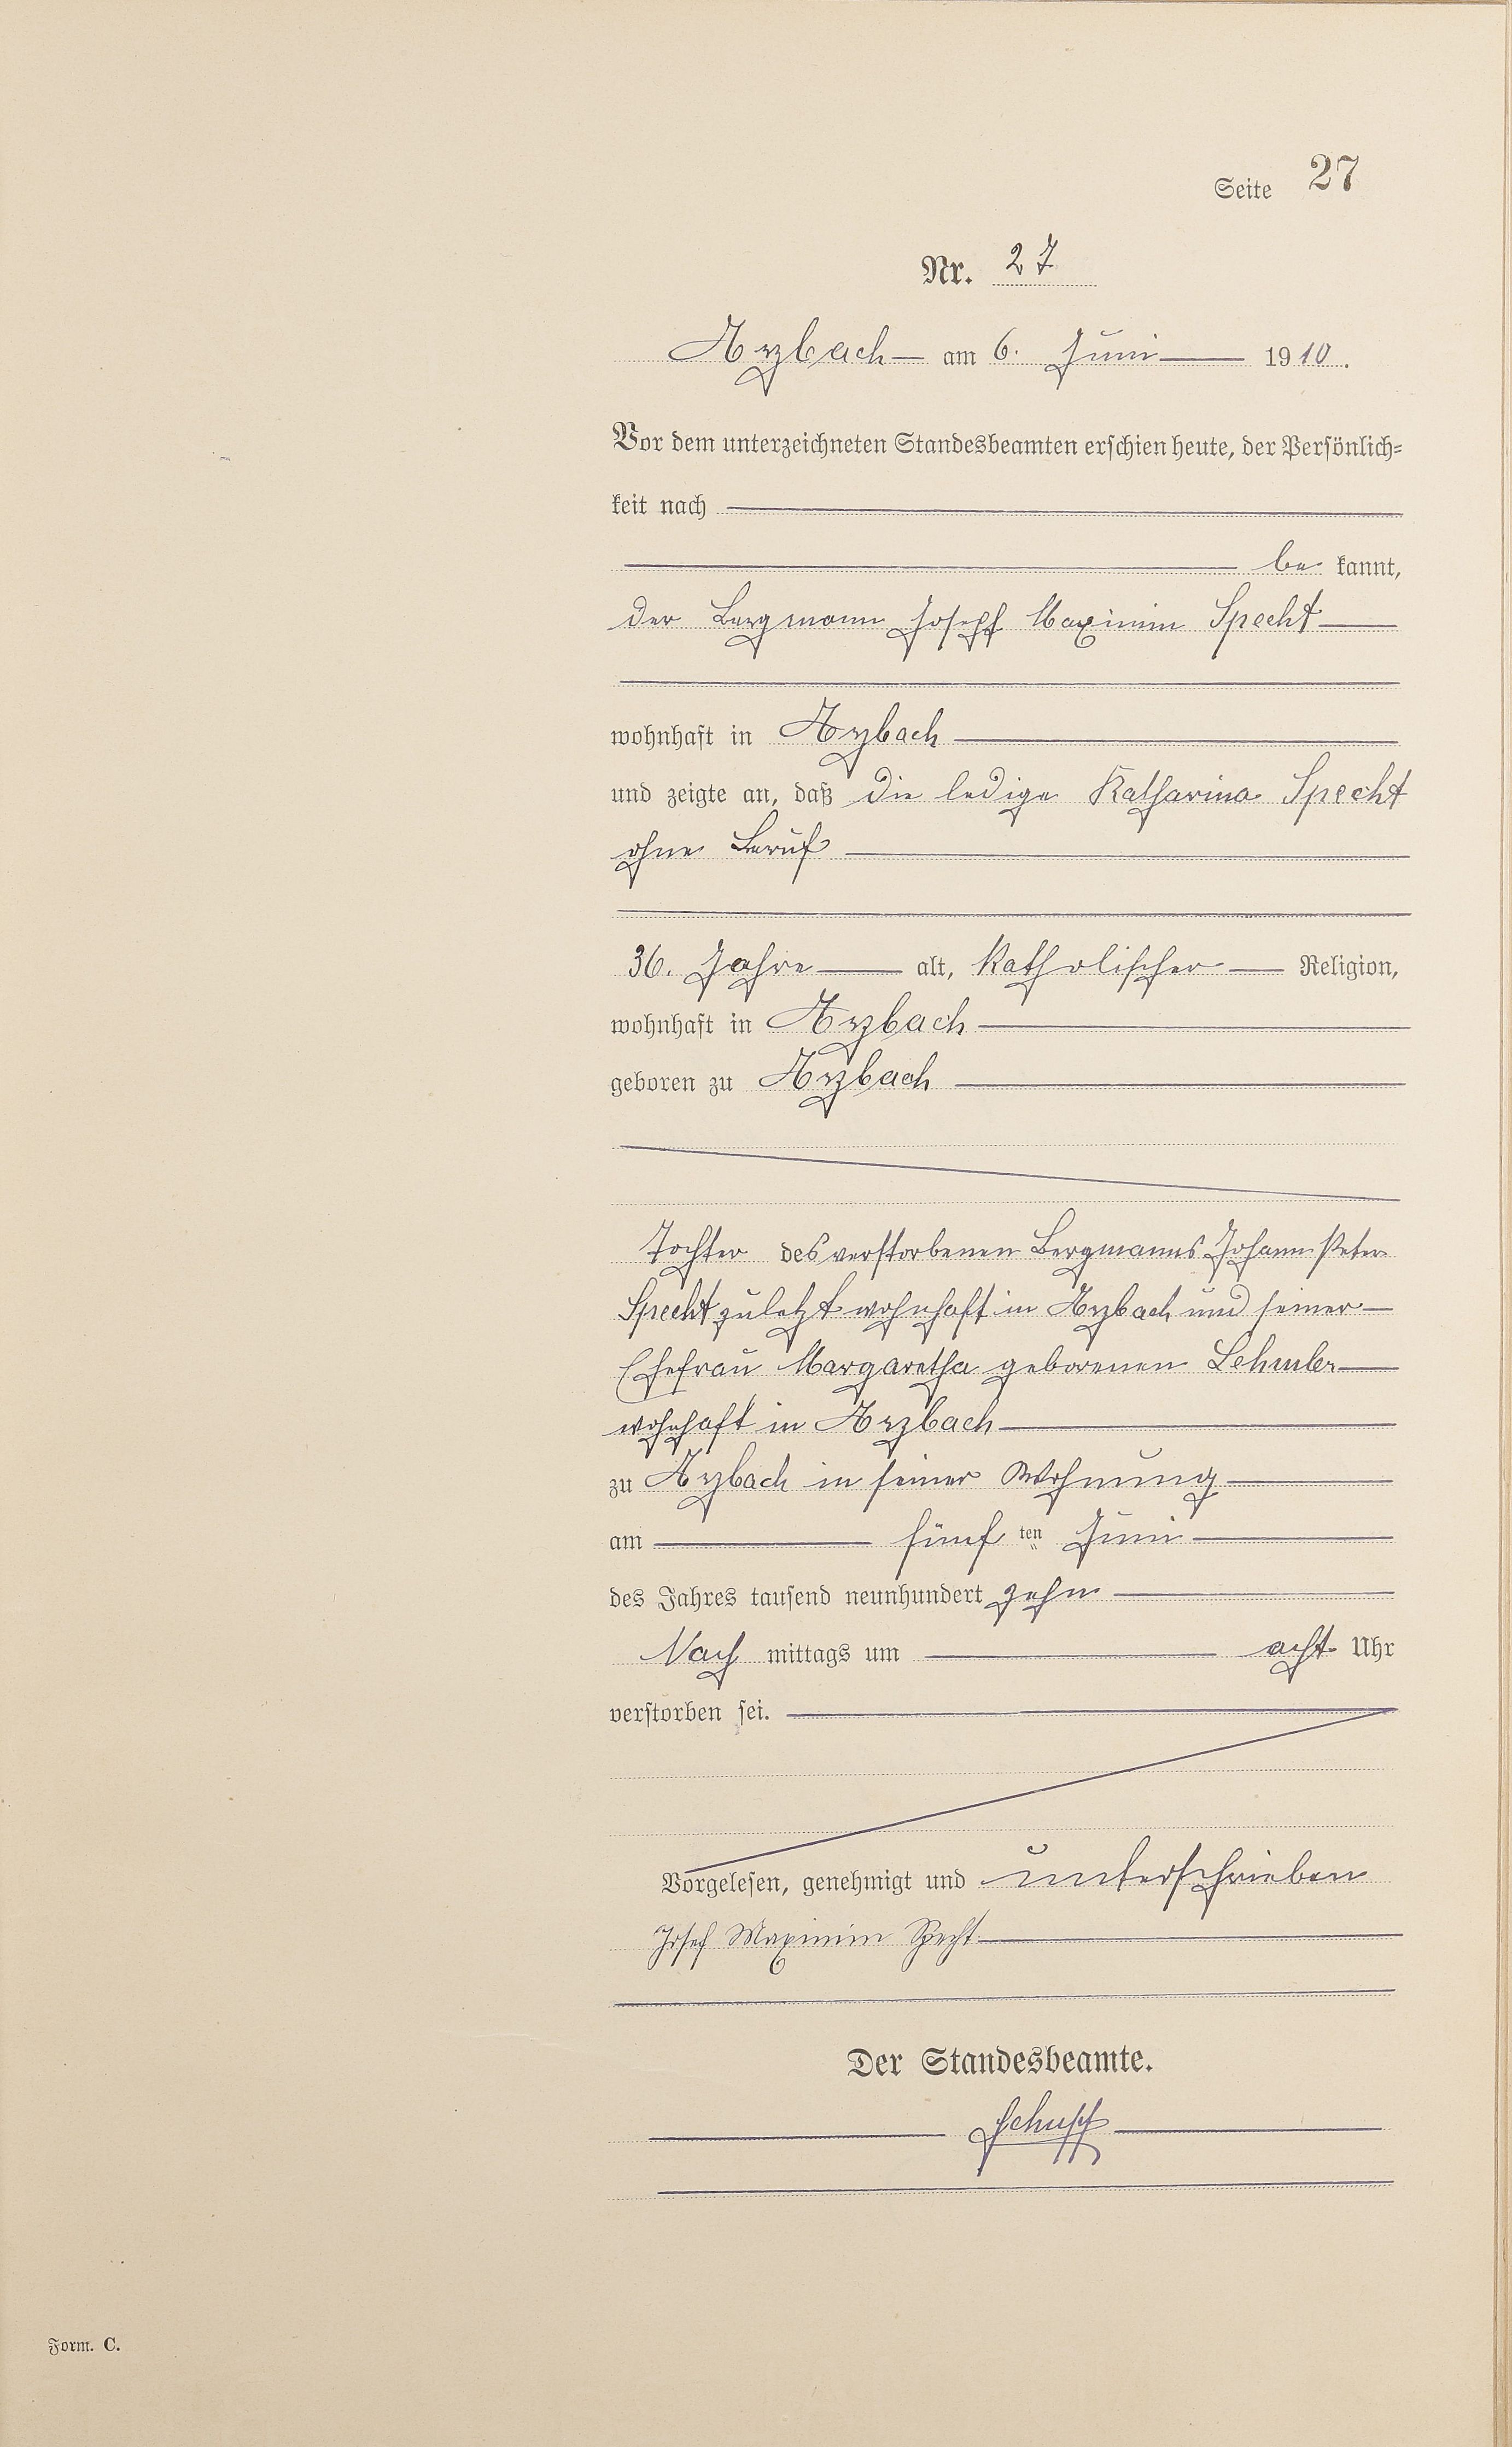 Seite 27
Nr. 27
Arzbach am 6. Juni 1910.
Vor dem unterzeichneten Standesbeamten erschien heute, der Persönlich-
keit nach
be kannt,
der Bergmann Joseph Maximin Specht
wohnhaft in Arzbach
und zeigte an, daß die ledige Katharina Specht
ohne Beruf
36. Jahre alt, katholischer Religion,
wohnhaft in Arzbach
geboren zu Arzbach
Tochter des verstorbenen Bergmanns Johann Peter
Specht zuletzt wohnhaft in Arzbach und seiner
Ehefrau Margaretha geborenen
wohnhaft in Arzbach
zu Arzbach in seiner Wohnung
am fünf ten Juni
des Jahres tausend neunhundert zehn
Nach mittags um acht Uhr
verstorben sei.
Vorgelesen, genehmigt und unterschrieben
Josef Maximin Specht
Der Standesbeamte.
Form. C.